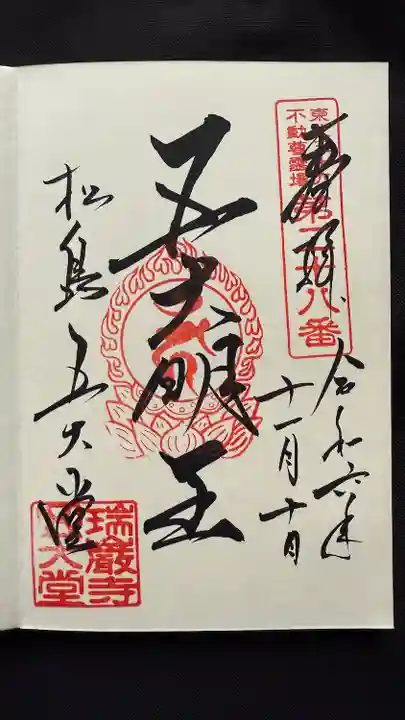 奉拝
東北
不動尊霊場
第二十八番
令和六年
十一月十日
五大明王
松島 五大堂
瑞巌寺
五大堂